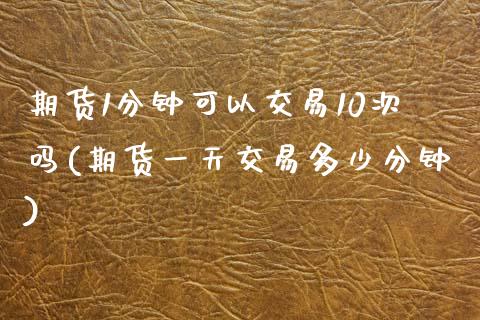 期货1分钟可以交易10次
吗(期货一天交易多少分钟
)